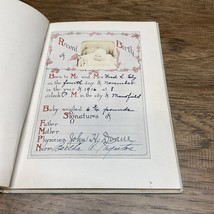 Record
of
Birth
Born to Mr. and Mrs.
on the fourth day of November
in the year of 1916 at 8
o'clock M in the city of Mansfield
Baby weighed 6 ½ pounds
Signatures of
Father
Mother
Physician John H.
Nurse